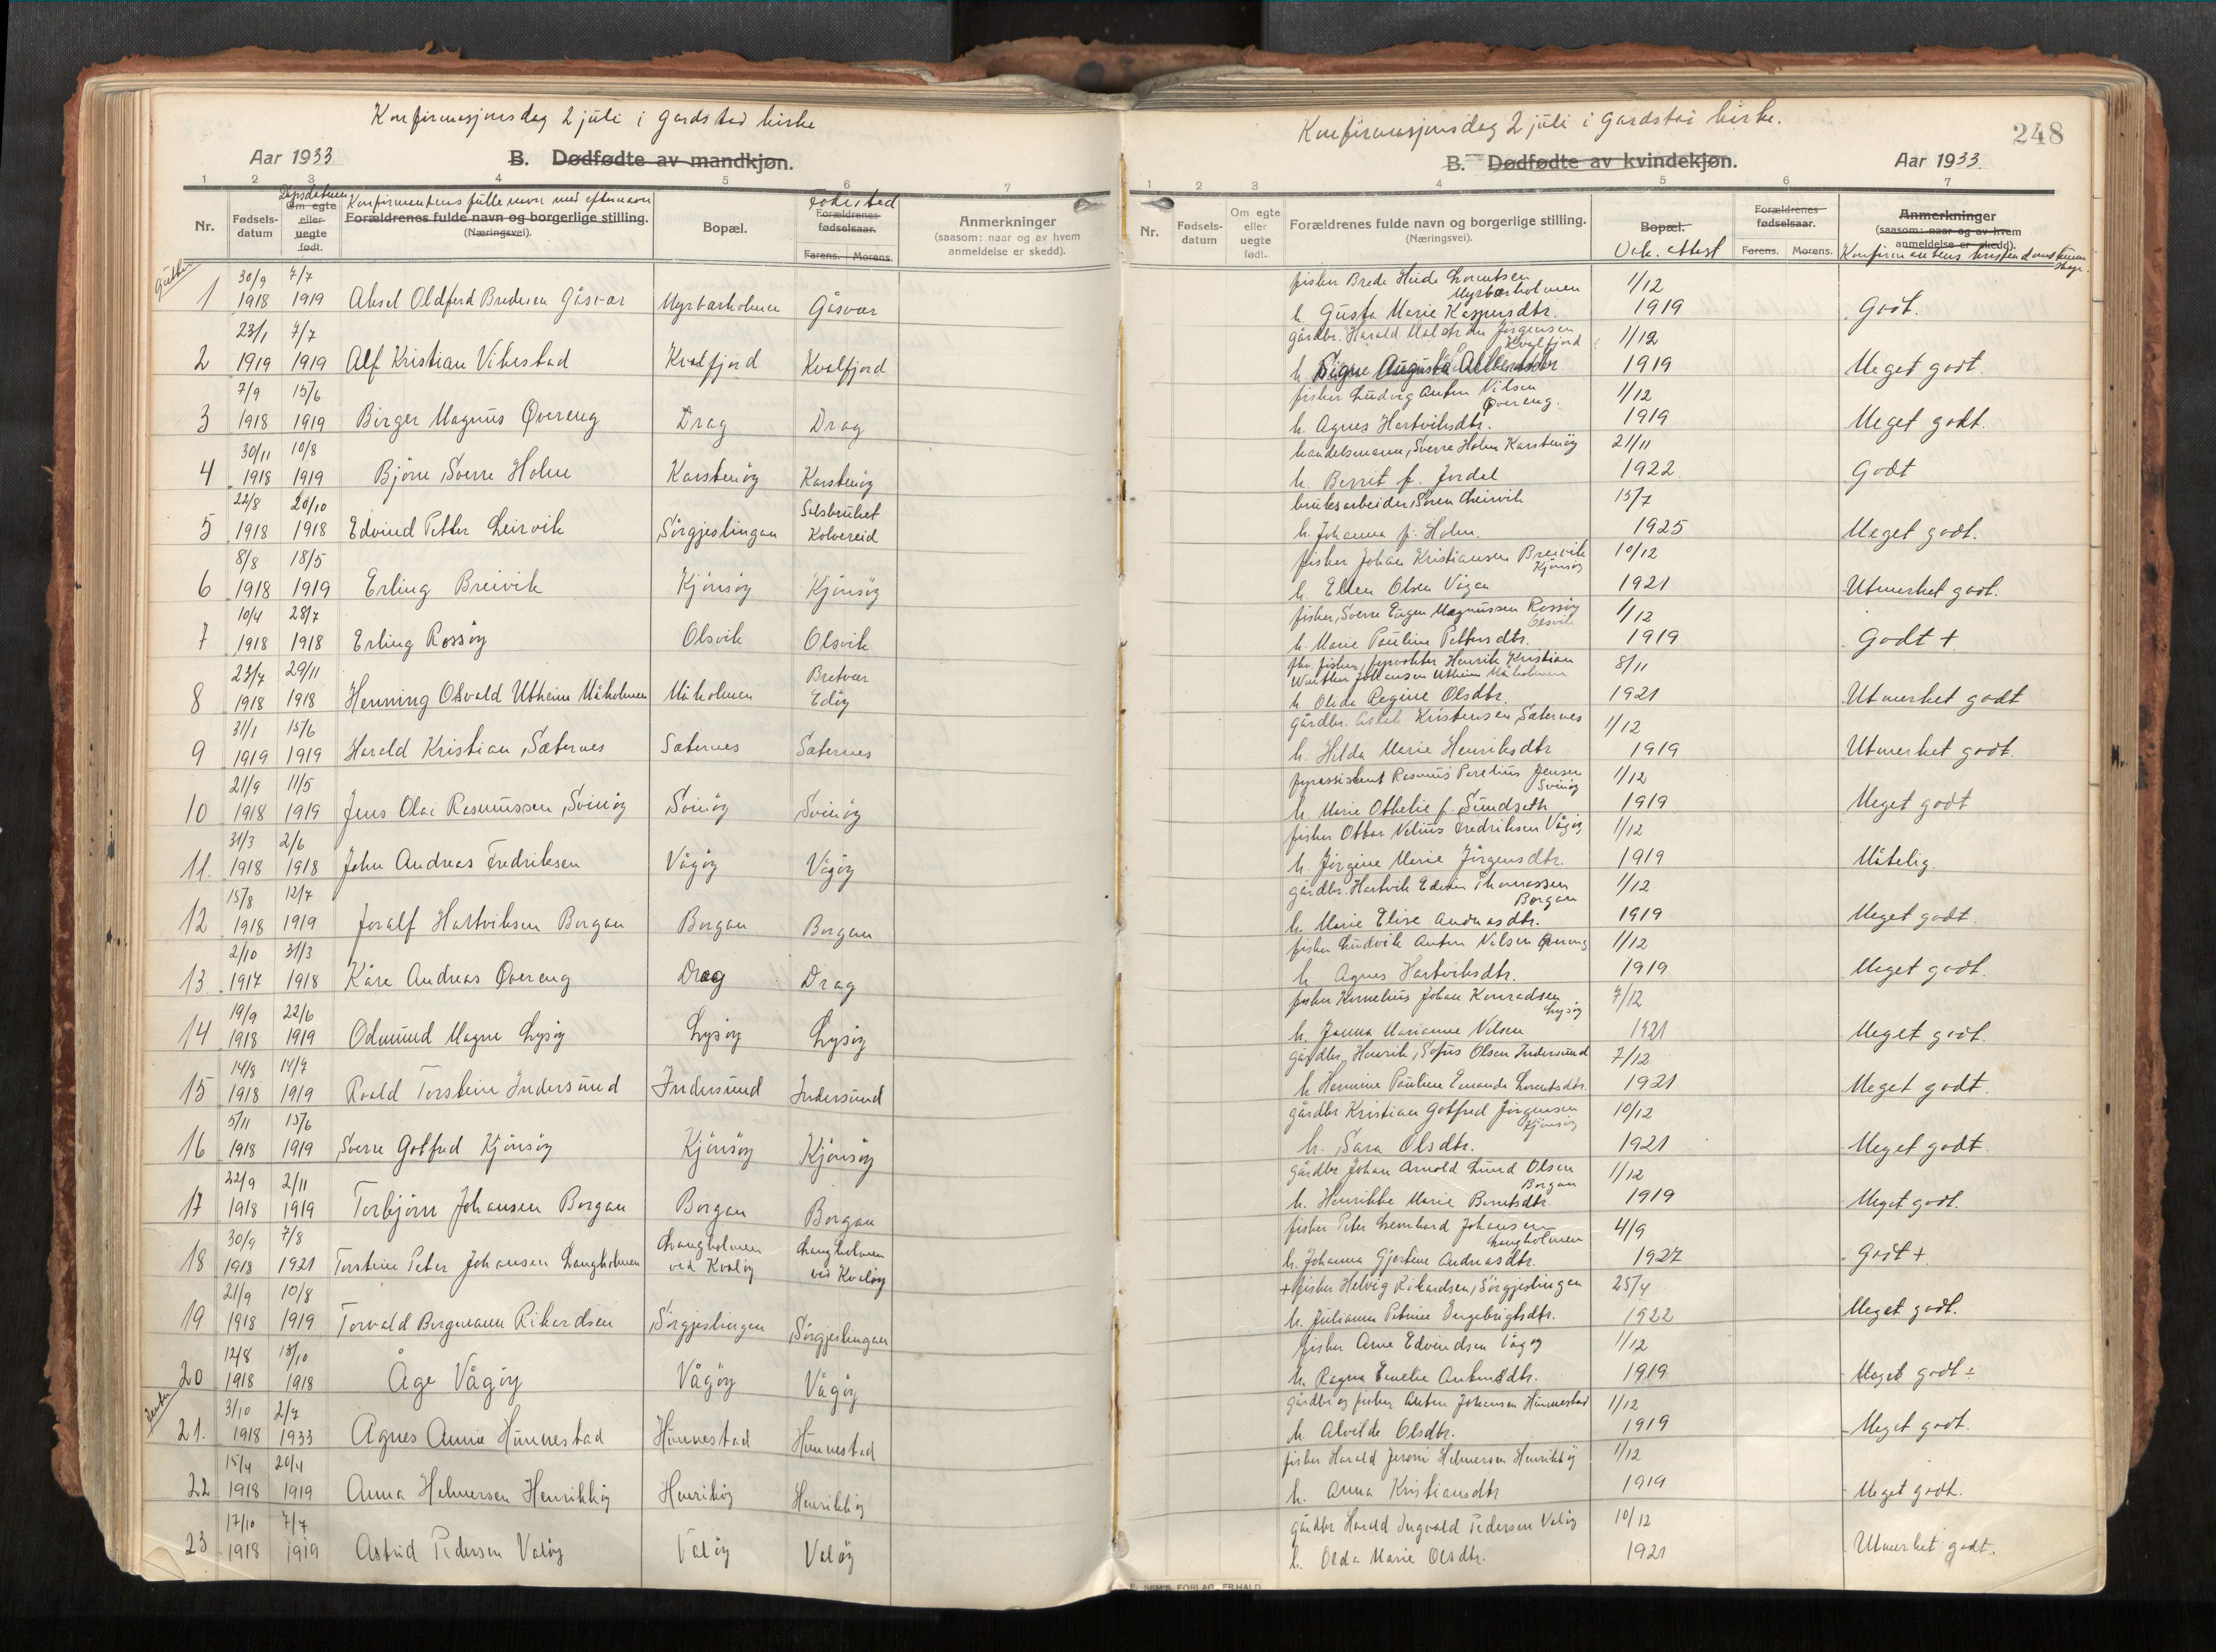 Konfirmasjonsdag 2 juli i Gardstad kirke
Aar 1933
B. Dødfødte av mandkjøn.
1 2 3 4 5 6 7
Nr.
Fødsels-datum
Dåpsdatum
Om egte eller uegte født.
Konfirmantens fulle navn med efternavn
Forældrenes fulde navn og borgerlige stilling.
(Næringsvei).
Bopæl.
Fødested
Forældrenes fødselsaar.
Farens. Morens
Anmerkninger
(saasom: naar og av hvem
anmeldelse er skedd).
Gutter
30/9 7/7
1 1918 1919 Aksel Oldferd Bredesen Gåsvær Myrbærholmen Gåsvær
23/1 7/7
2 1919 1919 Alf Kristian Vikestad Kvalfjord Kvalfjord
7/9 15/6
3 1918 1919 Birger Magnus Øvereng Drag Drag
30/11 10/8
4 1918 1919 Bjørn Sverre Holm Karstenøy Karstenøy
22/8 20/10 Salsbruket
5 1918 1918 Edvind Petter Leirvik Sørgjeslingan Kolvereid
8/8 18/5
6 1918 1919 Erling Breivik Kjønsøy Kjønsøy
10/4 28/7
7 1918 1918 Erling Rossøy Olsvik Olsvik
23/7 29/11 Bretvær
8 1918 1918 Henning Osvald Utheim Måholmen Måholmen Edøy
31/1 15/6
9 1919 1919 Harald Kristian Sæternes Sæternes Sæternes
21/9 11/5
10 1918 1919 Jens Olai Rasmussen Svinøy Svinøy Svinøy
31/3 2/6
11. 1918 1918 John Andreas Fredriksen Vågøy Vågøy
15/8 12/7
12 1918 1919 Joralf Hartviksen Borgan Borgan Borgan
2/10 31/3
13. 1917 1918 Kåre Andreas Øvereng Drag Drag
19/9 22/6
14 1918 1919 Odmund Magne Lysøy Lysøy Lysøy
14/8 14/7
15 1918 1919 Roald Torstein Indersund Indersund Indersund
5/11 15/6
16 1918 1919 Sverre Gotfred Kjønsøy Kjønsøy Kjønsøy
22/9 2/11
17 1918 1919 Torbjørn Johansen Borgan Borgan Borgan
30/9 7/8 Langholmen Langholmen
18 1918 1921 Torstein Peter Johansen Langholmen ved Kvaløy ved Kvaløy
21/9 10/8
19 1918 1919 Torvald Bergmann Rikardsen Sørgjeslingan Sørgjeslingan
12/8 13/10
20 1918 1918 Åge Vågøy Vågøy Vågøy
Jenter
3/10 2/7
21. 1918 1933 Agnes Annie Hunnestad Hunnestad Hunnestad
15/4 20/4
22 1918 1919 Anna Helmersen Henrikkøy Henrikøy Henrikkøy
17/10 7/7
23 1918 1919 Astrid Pedersen Valøy Valøy Valøy
Konfirmasjonsdag 2 juli i Gardstad kirke.
248
B. Dødfødte av kvindekjøn.
Aar 1933.
1 2 3 4 5 6 7
Nr.
Fødsels-datum
Om egte eller uegte født.
Forældrenes fulde navn og borgerlige stilling.
(Næringsvei).
Bopæl.
Vak. attest
Forældrenes fødselsaar.
Farens. Morens.
Anmerkninger
(saasom: naar og av hvem
anmeldelse er skedd).
Konfirmantens kristendomskunnskap.
fisker Brede Heide Lorentsen 1/12
Myrbærholmen
h. Gusta Marie Kaspersdtr. 1919 Godt.
gårdbr. Harald Jørgensen 1/12
Kvalfjord
h. Signe Augusta Albertsdtr 1919 Meget godt.
fisker Ludvig Anton Nilsen 1/12
Øvereng.
h. Agnes Hartviksdtr. 1919 Meget godt.
handelsmann, Sverre Holm Karstenøy 21/11
h. Berrit f. Jordal 1922 Godt
bruksarbeider, Søren Leirvik 15/7
h. Johanna f. Holm. 1925 Meget godt.
fisker Johan Kristiansen Breivik 10/12
Kjønsøy
h. Ellen Olsen Vågan 1921 Utmerket godt.
fisker, Sverre Eugen Magnussen Rossøy 1/12
Olsvik
h. Marie Pauline Pettersdtr. 1919 Godt +
fhv. fisker, fyrvokter Henrik Kristian 8/11
Johansen Utheim Måholmen
h. Olida Regine Olsdtr. 1921 Utmerket godt
gårdbr. Kristensen Sæternes 1/12
h. Hilda Marie Henriksdtr 1919 Utmerket godt.
fyrassistent Rasmus Parelius Jensen 1/12
Svinøy
h Marie Othelie f. Sundseth 1919 Meget godt
fisker Ottar Nelius Fredriksen Vågøy 1/12
h. Jørgine Marie Jørgensdtr. 1919 Måtelig.
gårdbr. Hartvik Edvin Thomassen 1/12
Borgan
h. Marie Elise Andreasdtr. 1919 Meget godt.
fisker Ludvik Anton Nilsen Øvereng 1/12
h. Agnes Hartviksdtr. 1919 Meget godt.
fisker Kornelius Johan Konradsen 7/12
Lysøy
h. Janna Marianne Nilsen 1921 Meget godt.
gårdbr, Henrik, Sofus Olsen Indersund 7/12
h Hermine Pauline Emanda Lorentsdtr. 1921 Meget godt.
gårdbr Kristian Gotfred Jørgensen 10/12
Kjønsøy
h. Sara Olsdtr. 1921 Meget godt.
gårdbr Johan Arnold Lund Olsen 1/12
Borgan
h. Henrikke Marie Berntsdtr. 1919 Meget godt.
fisker Peter Lernhard Johansen 4/9
Langholmen
h. Johanna Gjertine Andreasdtr. 1927 Godt +
+ fisker Helvig Rikardsen, Sørgjeslingan 25/4
h. Julianna Petrine Ingebrigtsdtr. 1922 Meget godt.
fisker Arne Edvindsen Vågøy 1/12
h. Ragna Emelie Antonsdtr. 1919 Meget godt ÷
gårdbr og fisker Anton Johansen Hunnestad 1/12
h. Alvilde Olsdtr. 1919 Meget godt.
fisker Harald Jeroni Helmersen Henrikkøy 1/12
h. Anna Kristiansdtr 1919 Meget godt.
gårdbr Harald Ingvald Pedersen Valøy 10/12
h. Olda Marie Olsdtr. 1921 Utmerket godt.
E. SEM'S FORLAG, FR.HALD